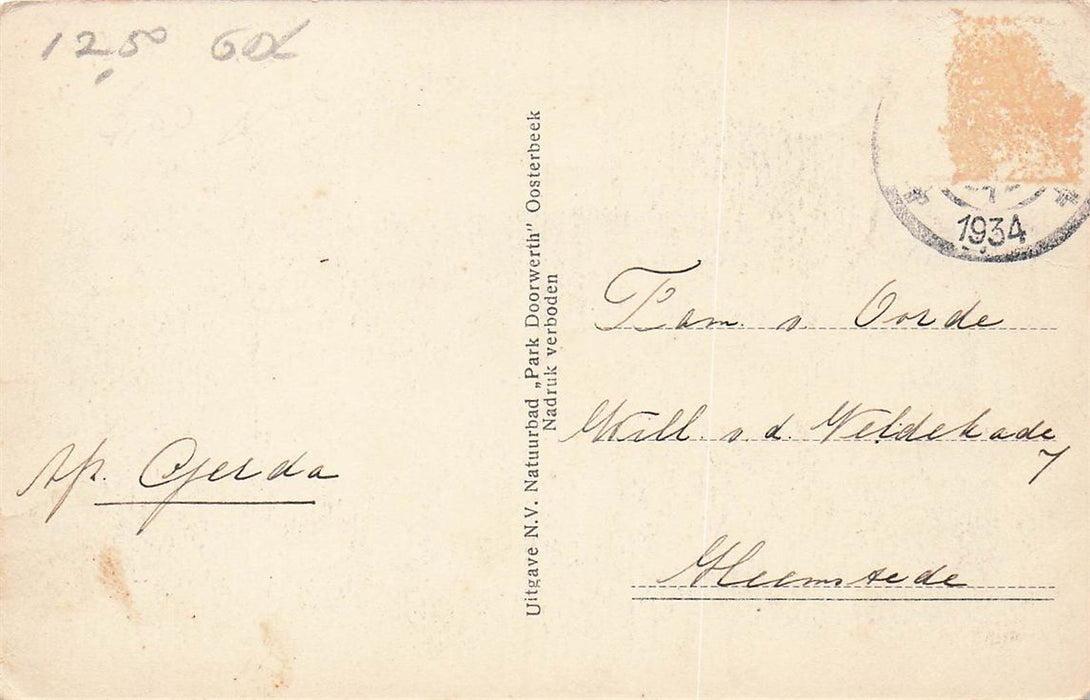 12,50
1934
Uitgave N.V. Natuurbad „Park Doorwerth" Oosterbeek
Nadruk verboden
Fam. v. Oorde
Will. v. d. Veldekade 7
Heemstede
Gerda